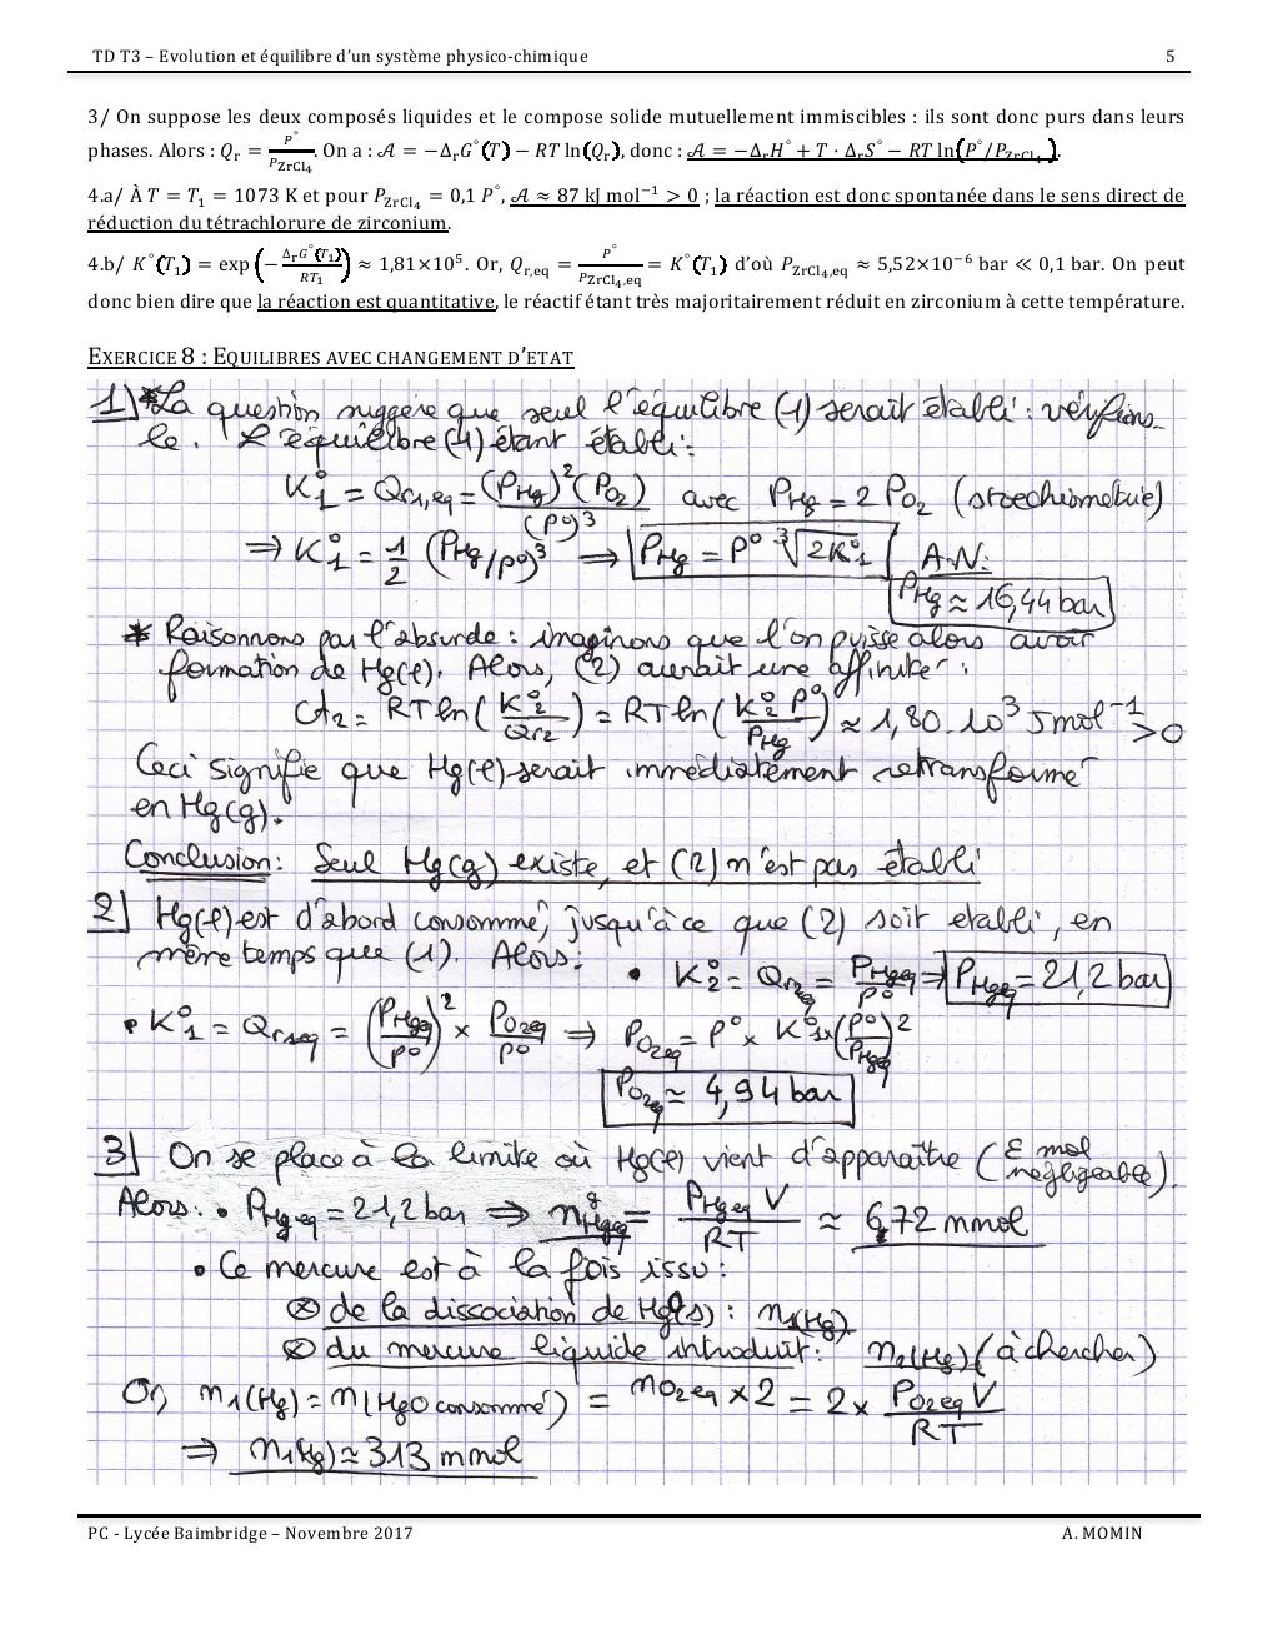 TD T3 – Evolution et équilibre d'un système physico-chimique 5
3/ On suppose les deux composés liquides et le compose solide mutuellement immiscibles : ils sont donc purs dans leurs
phases. Alors : Q_r = P°/P_ZrCl₄. On a : 𝒜 = −Δ_rG°(T) − RT ln(Q_r), donc : 𝒜 = −Δ_rH° + T · Δ_rS° − RT ln(P°/P_ZrCl₄).
4.a/ À T = T₁ = 1073 K et pour P_ZrCl₄ = 0,1 P°, 𝒜 ≈ 87 kJ mol⁻¹ > 0 ; la réaction est donc spontanée dans le sens direct de
réduction du tétrachlorure de zirconium.
4.b/ K°(T₁) = exp(−Δ_rG°(T₁)/RT₁) ≈ 1,81×10⁵. Or, Q_r,eq = P°/P_ZrCl₄,eq = K°(T₁) d'où P_ZrCl₄,eq ≈ 5,52×10⁻⁶ bar ≪ 0,1 bar. On peut
donc bien dire que la réaction est quantitative, le réactif étant très majoritairement réduit en zirconium à cette température.
EXERCICE 8 : EQUILIBRES AVEC CHANGEMENT D'ETAT
1) * La question suggère que seul l'équilibre (1) serait établi : vérifions-
le. L'équilibre (1) étant établi :
K₁° = Q_r1,eq = (P_Hg)²(P_O₂)/(P°)³ avec P_Hg = 2 P_O₂ (stoechiométrie)
⇒ K₁° = 1/2 (P_Hg/P°)³ ⇒ P_Hg = P° ∛(2K₁°) A.N.
P_Hg ≈ 16,44 bar
* Raisonnons par l'absurde : imaginons que l'on puisse alors avoir
formation de Hg(l). Alors, (2) aurait une affinité :
𝒜₂ = RT ln(K₂°/Q_r2) = RT ln(K₂° P°/P_Hg) ≈ 1,80.10³ J mol⁻¹ > 0
Ceci signifie que Hg(l) serait immédiatement retransformé
en Hg(g).
Conclusion : Seul Hg(g) existe, et (2) n'est pas établi
2) Hg(l) est d'abord consommé, jusqu'à ce que (2) soit etabli, en
même temps que (1). Alors : • K₂° = Q_r2eq = P_Hgeq/P° ⇒ P_Hgeq = 21,2 bar
• K₁° = Q_r1eq = (P_Hgeq/P°)² × P_O₂eq/P° ⇒ P_O₂eq = P° × K₁° × (P°/P_Hgeq)²
P_O₂eq ≈ 4,94 bar
3) On se place à la limite où Hg(l) vient d'apparaître (ε mol négligeable).
Alors : • P_Hgeq = 21,2 bar ⇒ n^g_Hgeq = P_Hgeq V/RT ≈ 6,72 mmol
• Ce mercure est à la fois issu :
⊗ de la dissociation de HgO(s) : n₁(Hg)
⊗ du mercure liquide introduit : n₂(Hg) (à chercher)
Or, n₁(Hg) = n(HgO consommé) = n_O₂eq × 2 = 2 × P_O₂eq V/RT
⇒ n₁(Hg) ≈ 3,13 mmol
PC - Lycée Baimbridge – Novembre 2017 A. MOMIN